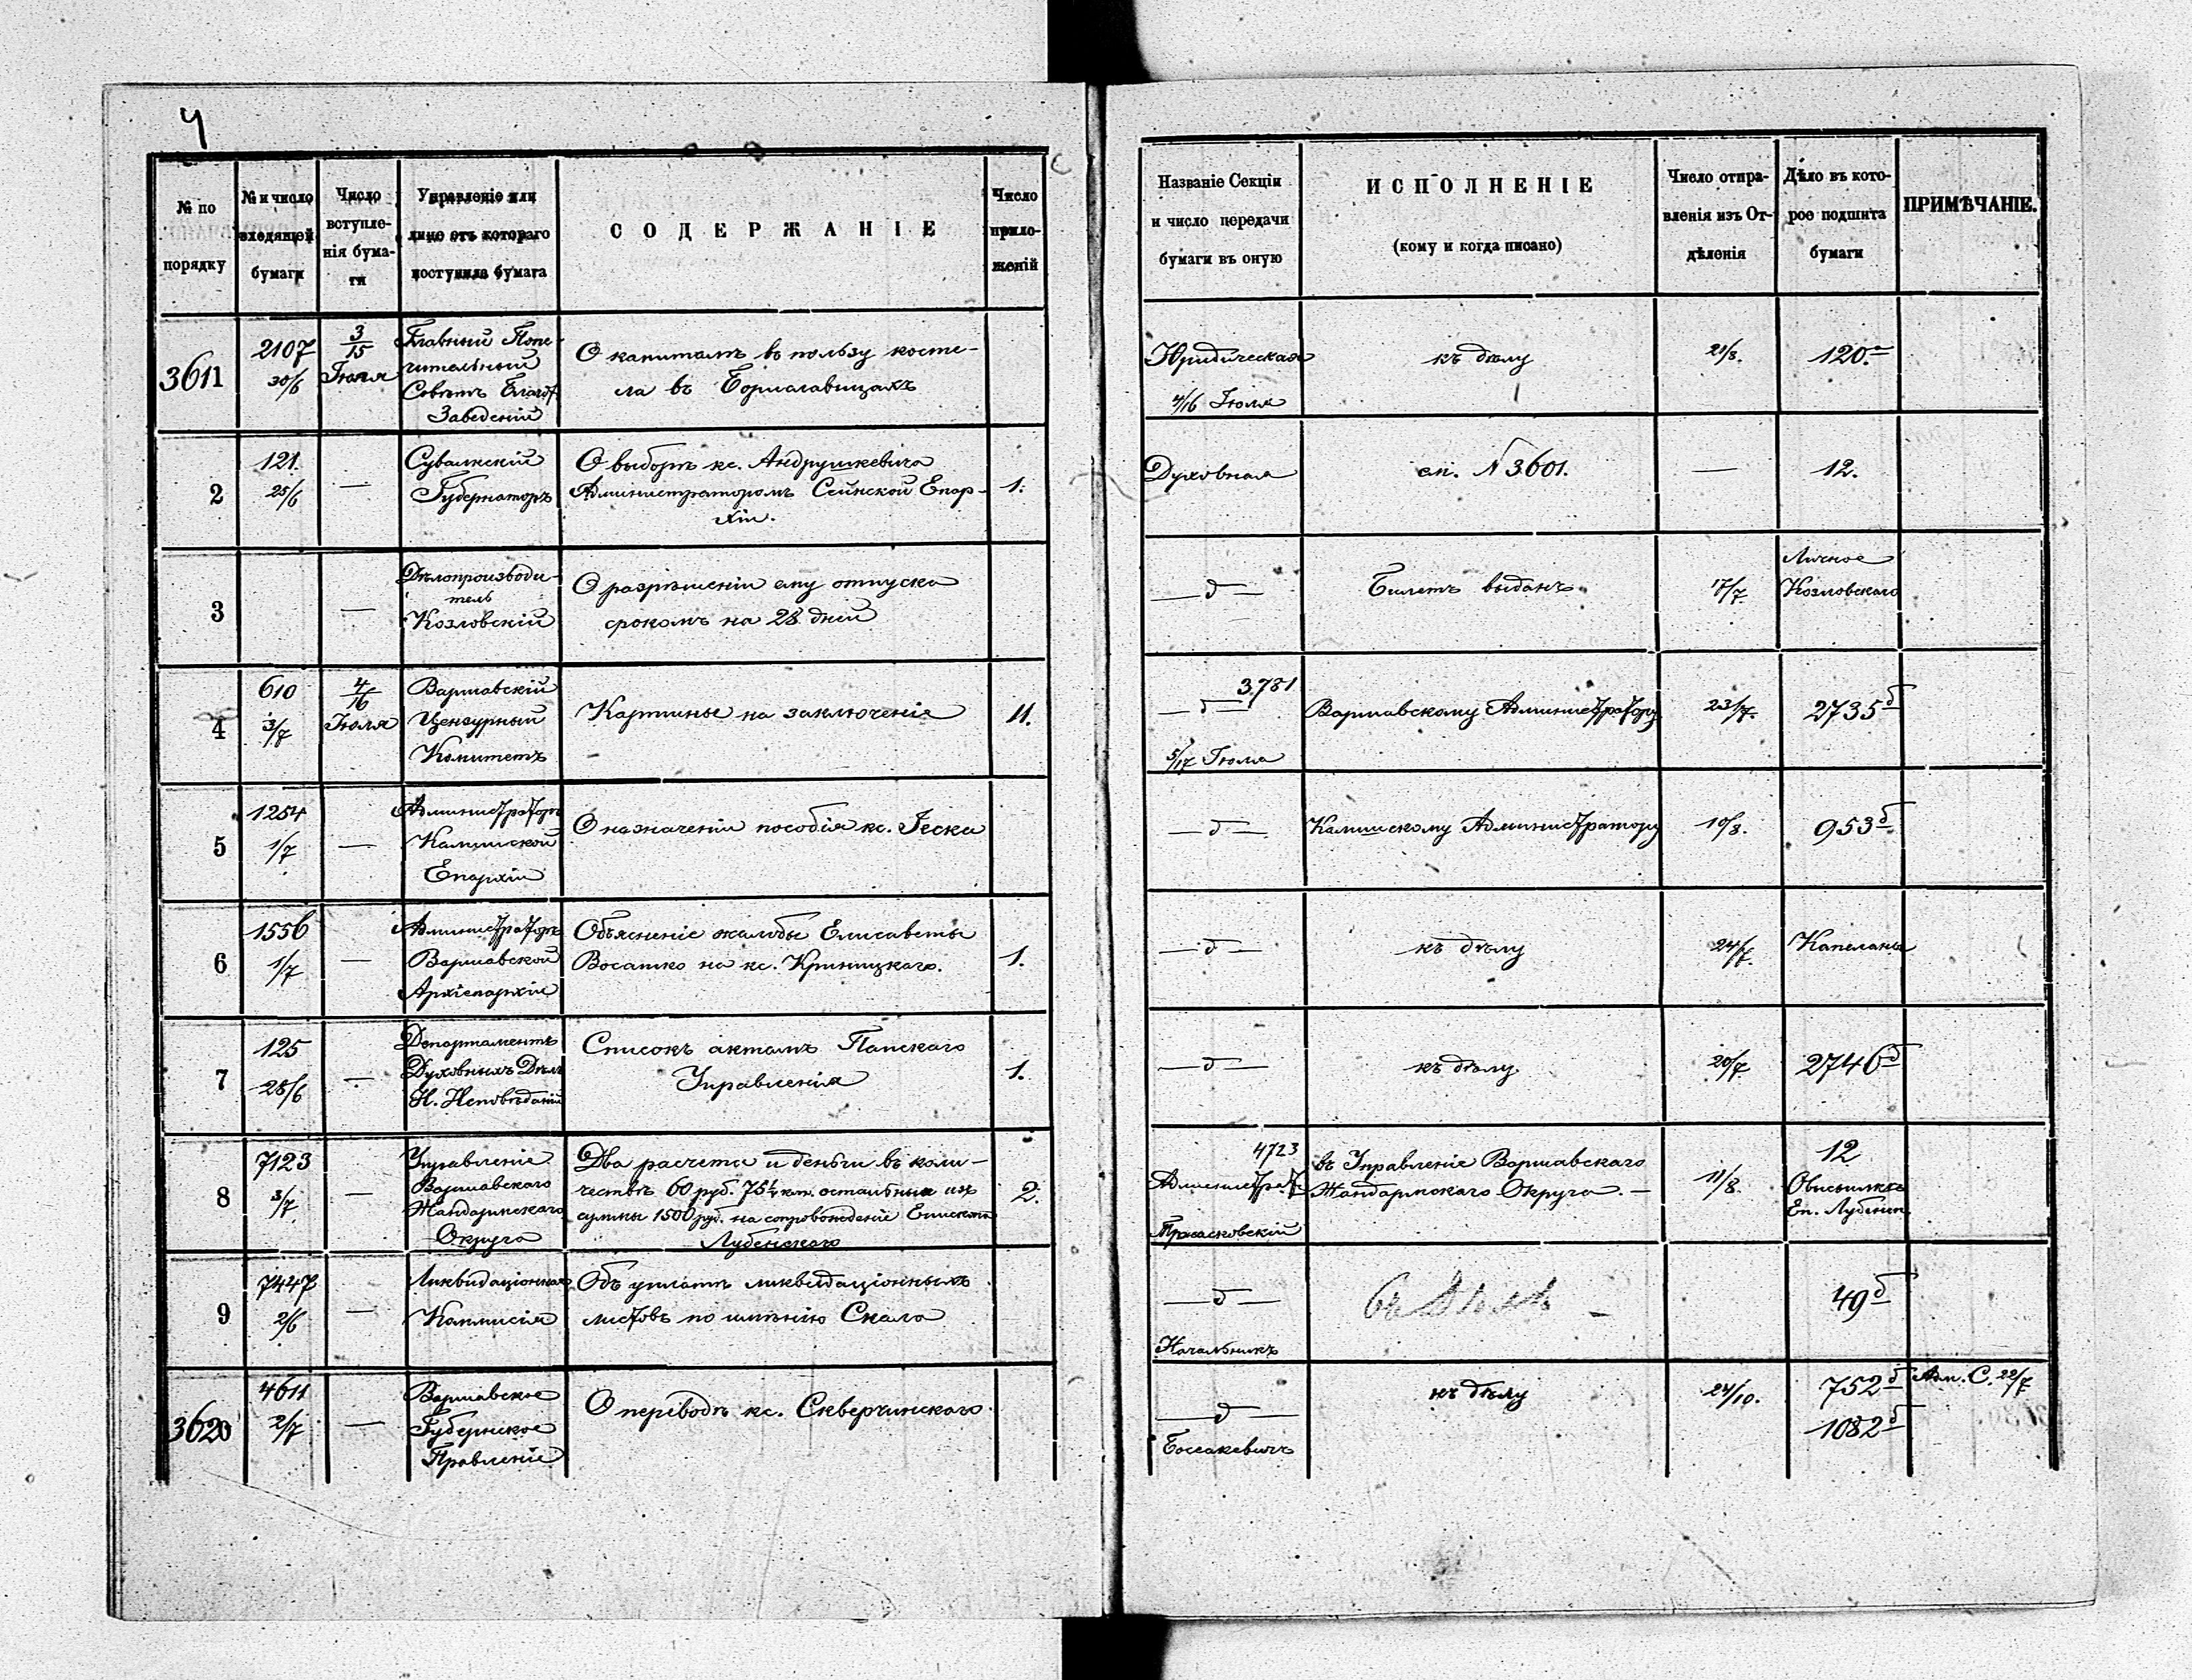 4
№ по порядку
№ и число входящей бумаги
Число вступле-
нія бума-
ги
Управленіе или
лицо отъ котораго
поступила бумага
СОДЕРЖАНІЕ
Число
прило-
женій
Названіе Секціи
и число передачи
бумаги въ оную
ИСПОЛНЕНІЕ
(кому и когда писано)
Число отпра-
вленія изъ От-
дѣленія
Дѣло въ кото-
рое подшита
бумаги
ПРИМѢЧАНІЕ.
3611
2107
30/6
3/15
Іюля
Главный Попе-
чительный
Совѣтъ Благотв.
Заведеній
О капиталѣ въ пользу косте-
ла въ
Юридическая
4/16 Іюля
къ дѣлу
21/8.
120 а
2
121.
25/6
—
Сувалкскій
Губернаторъ
О выборѣ кс. Андрушкевича
Администраторомъ Сейнской Епар-
хіи.
1.
Духовная
см. № 3601.
—
12.
3
—
Дѣлопроизводи-
тель
Козловскій
О разрѣшеніи ему отпуска
срокомъ на 28 дней
— д —
Билетъ выданъ
17/7.
Личное
Козловскаго
4
610
3/7
4/16
Іюля
Варшавскій
Цензурный
Комитетъ
Картины на заключеніе
11.
3781
— д —
5/17 Іюля
Варшавскому Администратору
23/7.
2735 б
5
1254
1/7
—
Администраторъ
Калишской
Епархіи
О назначеніи пособія кс. Іески
— д —
Калишскому Администратору
10/8.
953 б
6
1556
1/7
—
Администраторъ
Варшавской
Архіепархіи
Объясненіе жалобы Елисаветы
Восатко на кс. Криницкаго.
1.
— д —
къ дѣлу
24/7.
Капеланы
7
125
28/6
—
Департаментъ
Духовныхъ Дѣлъ
И. Исповѣданій
Списокъ актамъ Папскаго
Управленія
1.
— д —
къ дѣлу
20/7
2746 б
8
7123
3/7
—
Управленіе
Варшавскаго
Жандармскаго
Округа
Два расчета и деньги въ коли-
чествѣ 60 руб. 75½ коп. остальныя изъ
суммы 1500 руб. на сопровожденіе Епископа
Лубенскаго
2.
4723
Администрат.
въ Управленіе Варшавскаго
Жандармскаго Округа. —
11/8.
12
О высылкѣ
Еп. Лубенск.
9
7447
2/6
—
Ликвидаціонная
Коммисія
Объ уплатѣ ликвидаціонныхъ
листовъ по имѣнію Скала
— д —
Начальникъ
къ дѣлу —
49 б
3620
4611
2/7
—
Варшавское
Губернское
Правленіе
О переводѣ кс. Скверчинскаго.
— д —
Боссакевичъ
къ дѣлу
24/10.
752 б
1082 б
Адм. С. 22/7